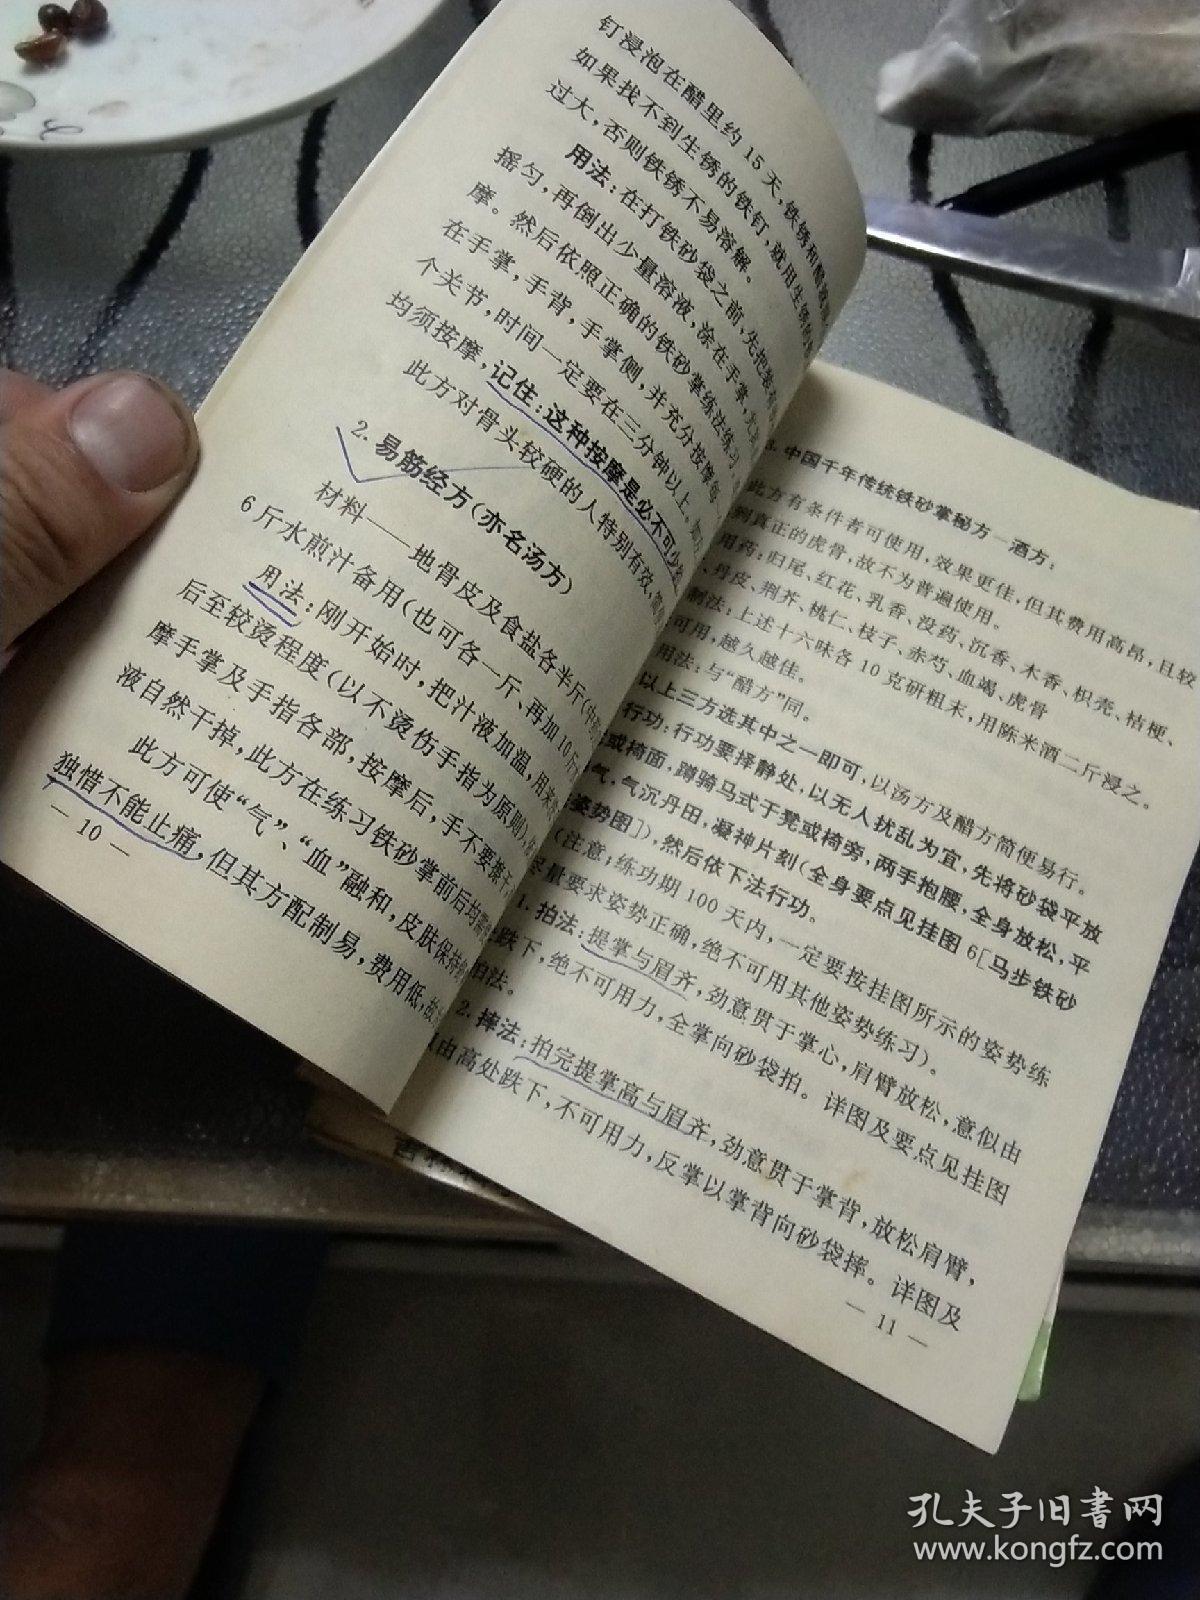 钉浸泡在醋里约15天,铁锈和醋液
如果找不到生锈的铁钉,就用生锈的
过大,否则铁锈不易溶解。
用法:在打铁砂袋之前,先把装有
摇匀,再倒出少量溶液,涂在手掌、
摩。然后依照正确的铁砂掌练法练习
在手掌,手背,手掌侧,并充分按摩每
个关节,时间一定要在三分钟以上。如
均须按摩,记住:这种按摩是必不可少的
此方对骨头较硬的人特别有效,
2. 易筋经方(亦名汤方)
材料——地骨皮及食盐各半斤(
6斤水煎汁备用(也可各一斤、再加10斤
用法:刚开始时,把汁液加温,用来
后至较烫程度(以不烫伤手指为原则),
摩手掌及手指各部,按摩后,手不要擦干,
液自然干掉,此方在练习铁砂掌前后均需
此方可使“气”、“血”融和,皮肤保持
独惜不能止痛,但其方配制易,费用低,故
— 10 —
3. 中国千年传统铁砂掌秘方—酒方:
此方有条件者可使用,效果更佳,但其费用高昂,且较
到真正的虎骨,故不为普遍使用。
用药:归尾、红花、乳香、没药、沉香、木香、枳壳、桔梗、
、丹皮、荆芥、桃仁、枝子、赤芍、血竭、虎骨
制法:上述十六味各10克研粗末,用陈米酒二斤浸之。
可用,越久越佳。
用法:与“醋方”同。
以上三方选其中之一即可,以汤方及醋方简便易行。
行功:行功要择静处,以无人扰乱为宜,先将砂袋平放
或椅面,蹲骑马式于凳或椅旁,两手抱腰,全身放松,平
气,气沉丹田,凝神片刻(全身要点见挂图6[马步铁砂
姿势图]),然后依下法行功。
(注意:练功期100天内,一定要按挂图所示的姿势练
尽量要求姿势正确,绝不可用其他姿势练习)。
1. 拍法:提掌与眉齐,劲意贯于掌心,肩臂放松,意似由
跌下,绝不可用力,全掌向砂袋拍。详图及要点见挂图
拍法。
2. 摔法:拍完提掌高与眉齐,劲意贯于掌背,放松肩臂,
由高处跌下,不可用力,反掌以掌背向砂袋摔。详图及
— 11 —
孔夫子旧书网
www.kongfz.com